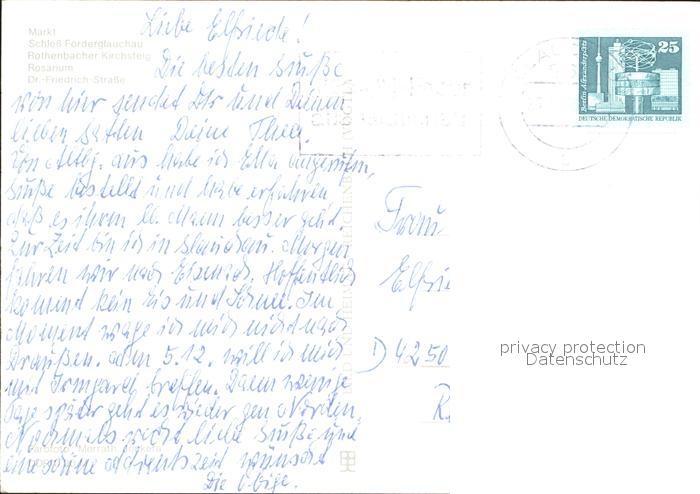 Markt
Schloß Forderglauchau
Rothenbacher Kirchsteig
Rosarium
Dr.-Friedrich-Straße
Liebe Elfriede!
Die besten Grüße
von hier sendet Dir und Deinem
lieben Gatten Deine Thea
Von Altbg. aus habe ich Ella angerufen,
Grüße bestellt und habe erfahren
daß es ihrem lb. Mann besser geht.
Zur Zeit bin ich in Glauchau. Morgen
fahren wir nach Eisenach. Hoffentlich
kommt kein Eis und Schnee. Im
Moment wage ich mich nicht nach
draußen. Am 5.12. will ich mich
mit Irmgard treffen. Dann wenige
Tage später geht es wieder gen Norden.
Nochmals recht liebe Grüße und
eine schöne Adventszeit wünscht
Die O-bige.
Berlin Alexanderplatz
25
DEUTSCHE DEMOKRATISCHE REPUBLIK
Frau
Elfrie
D 4250
privacy protection
Datenschutz